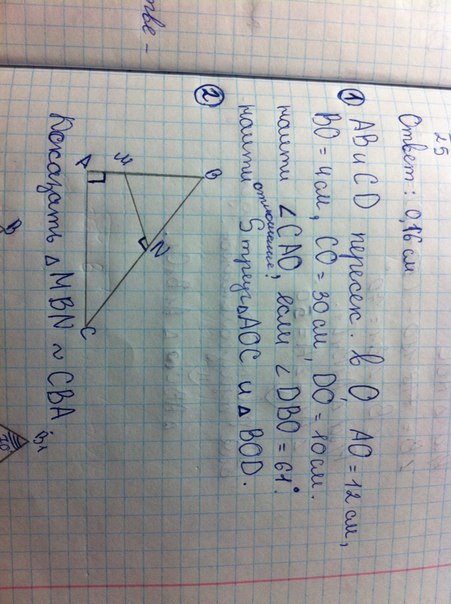 тве-
25
Ответ: 0,16 см
① АВ и CD пересек. в О, АО = 12 см,
ВО = 4 см, СО = 30 см, DO = 10 см.
найти ∠CAO, если ∠DBO = 61°.
отношение
найти S треуг △AOC и △BOD.
②
B
M
N
A
C
Доказать △MBN ~ CBA
B
B₁